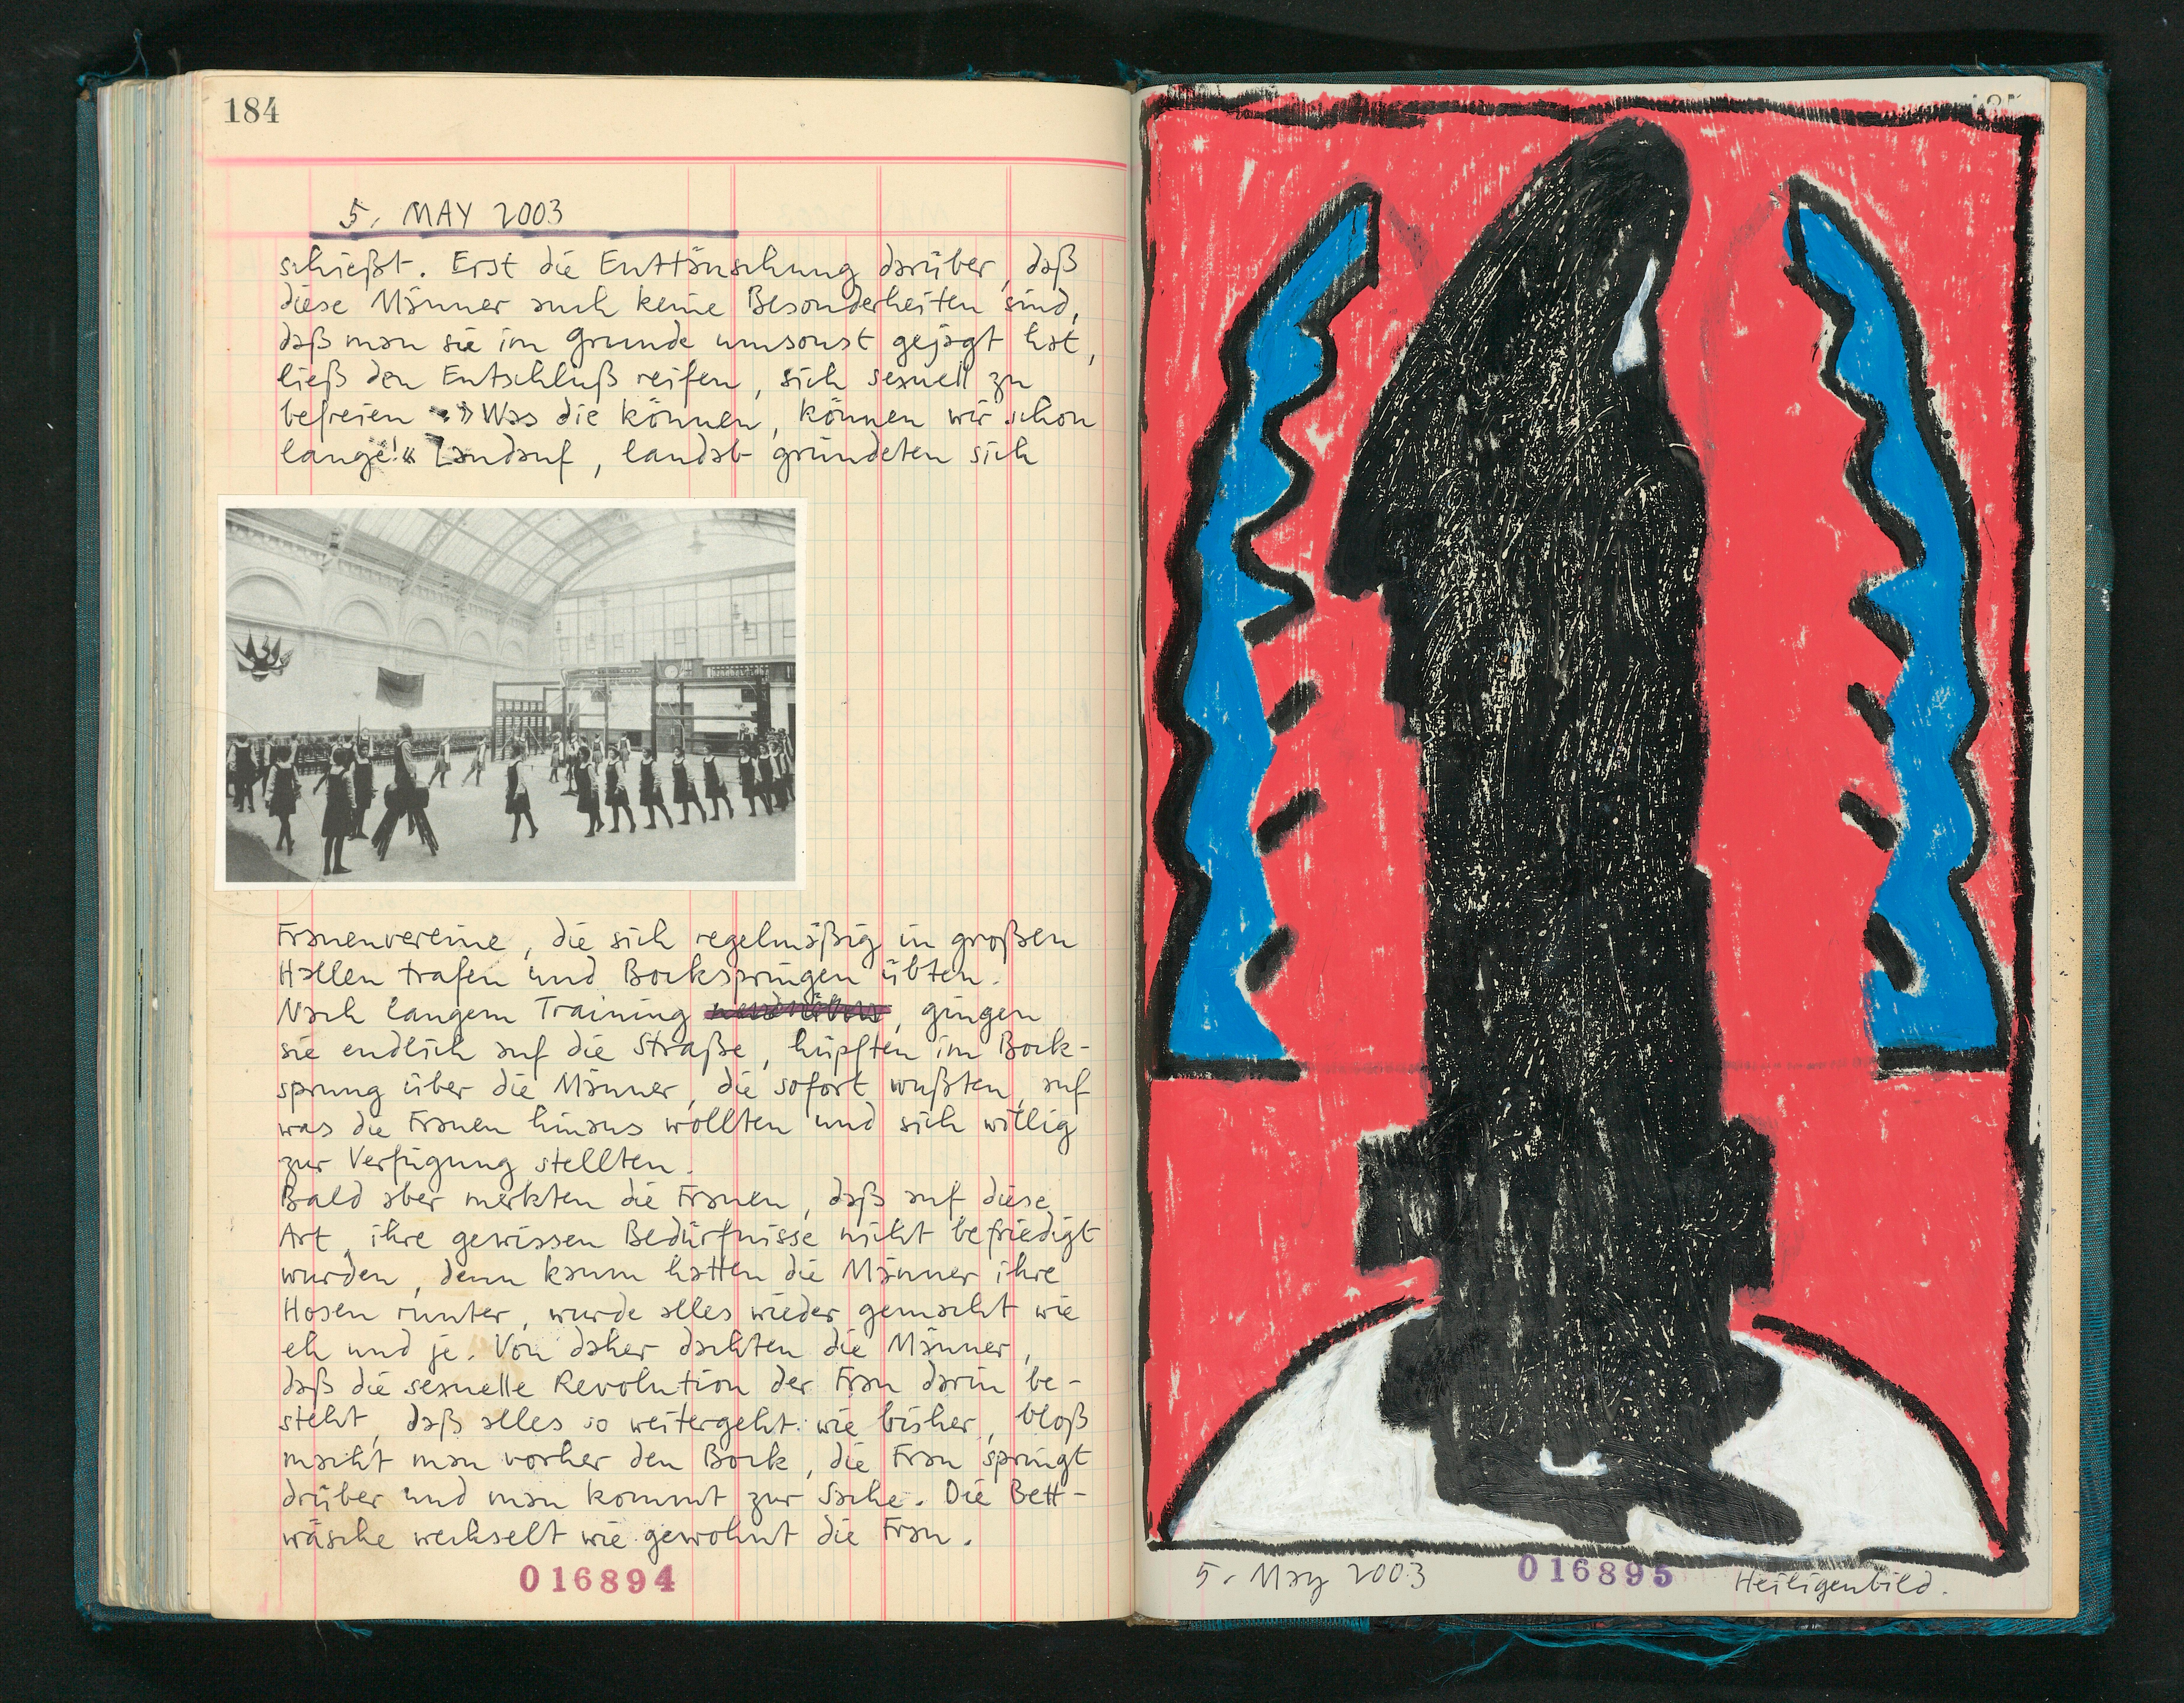 184
5. MAY 2003
schießt. Erst die Enttäuschung darüber, daß
diese Männer auch keine Besonderheiten sind,
daß man sie im Grunde umsonst gejagt hat,
ließ den Entschluß reifen, sich sexuell zu
befreien. »Was die können, können wir schon
lange!« Landauf, landab gründeten sich
Frauenvereine, die sich regelmäßig in großen
Hallen trafen und Bockspringen übten.
Nach langem Training, gingen
sie endlich auf die Straße, hüpften im Bock-
sprung über die Männer, die sofort wußten, auf
was die Frauen hinaus wollten und sich willig
zur Verfügung stellten.
Bald aber merkten die Frauen, daß auf diese
Art, ihre gewissen Bedürfnisse nicht befriedigt
wurden, denn kaum hatten die Männer ihre
Hosen runter, wurde alles wieder gemacht wie
eh und je. Von daher dachten die Männer,
daß die sexuelle Revolution der Frau darin be-
steht, daß alles so weitergeht wie bisher, bloß
macht man vorher den Bock, die Frau springt
drüber und man kommt zur Sache. Die Bett-
wäsche wechselt wie gewohnt die Frau.
016894
5. May 2003
016895
Heiligenbild.